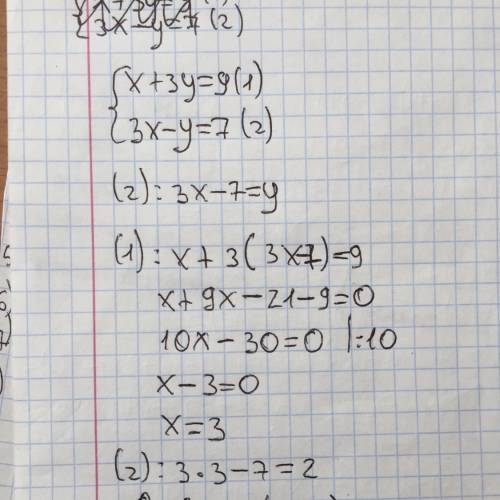 {3x-y=7 (2)
{x+3y=9(1)
3x-y=7 (2)
(2): 3x-7=y
(1): x+3(3x-7)=9
x+9x-21-9=0
10x-30=0 |:10
x-3=0
x=3
(2): 3·3-7=2